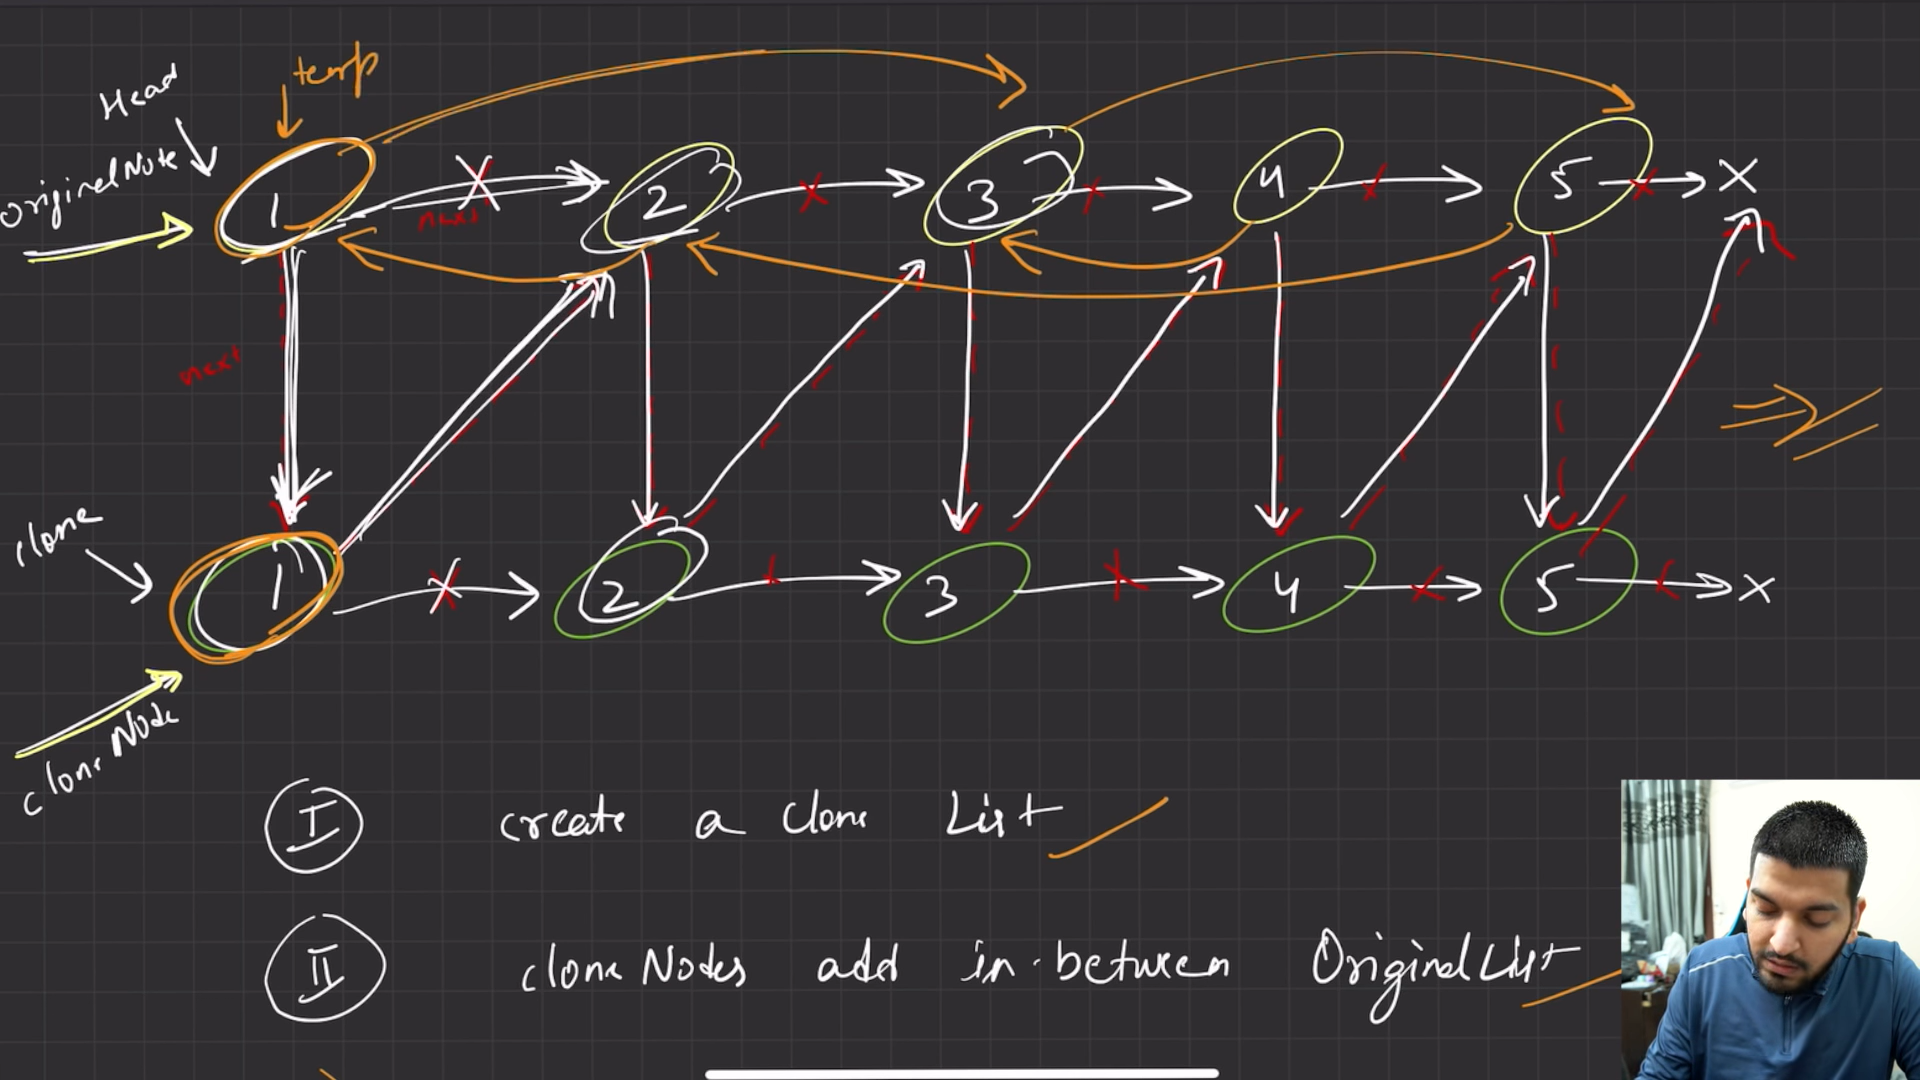 temp
Head
OriginalNode
1 2 3 4 5 X
next
next
clone
1 2 3 4 5 X
cloneNode
I create a clone List
II cloneNodes add in-between OriginalList